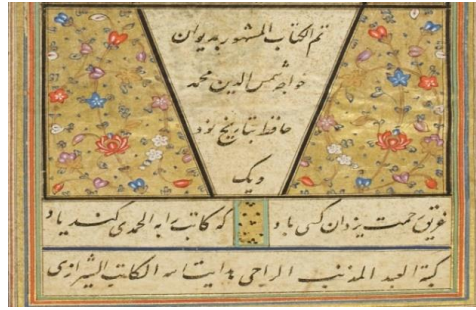 تم الکتاب المشهور بدیوان
خواجه شمس الدین محمد
حافظ بتاریخ نود
ویک
غریق رحمت یزدان کسی باد که کاتب را به الحمدی کند یاد
کتبه العبد المذنب الراجی هدایت الله الکاتب الشیرازی